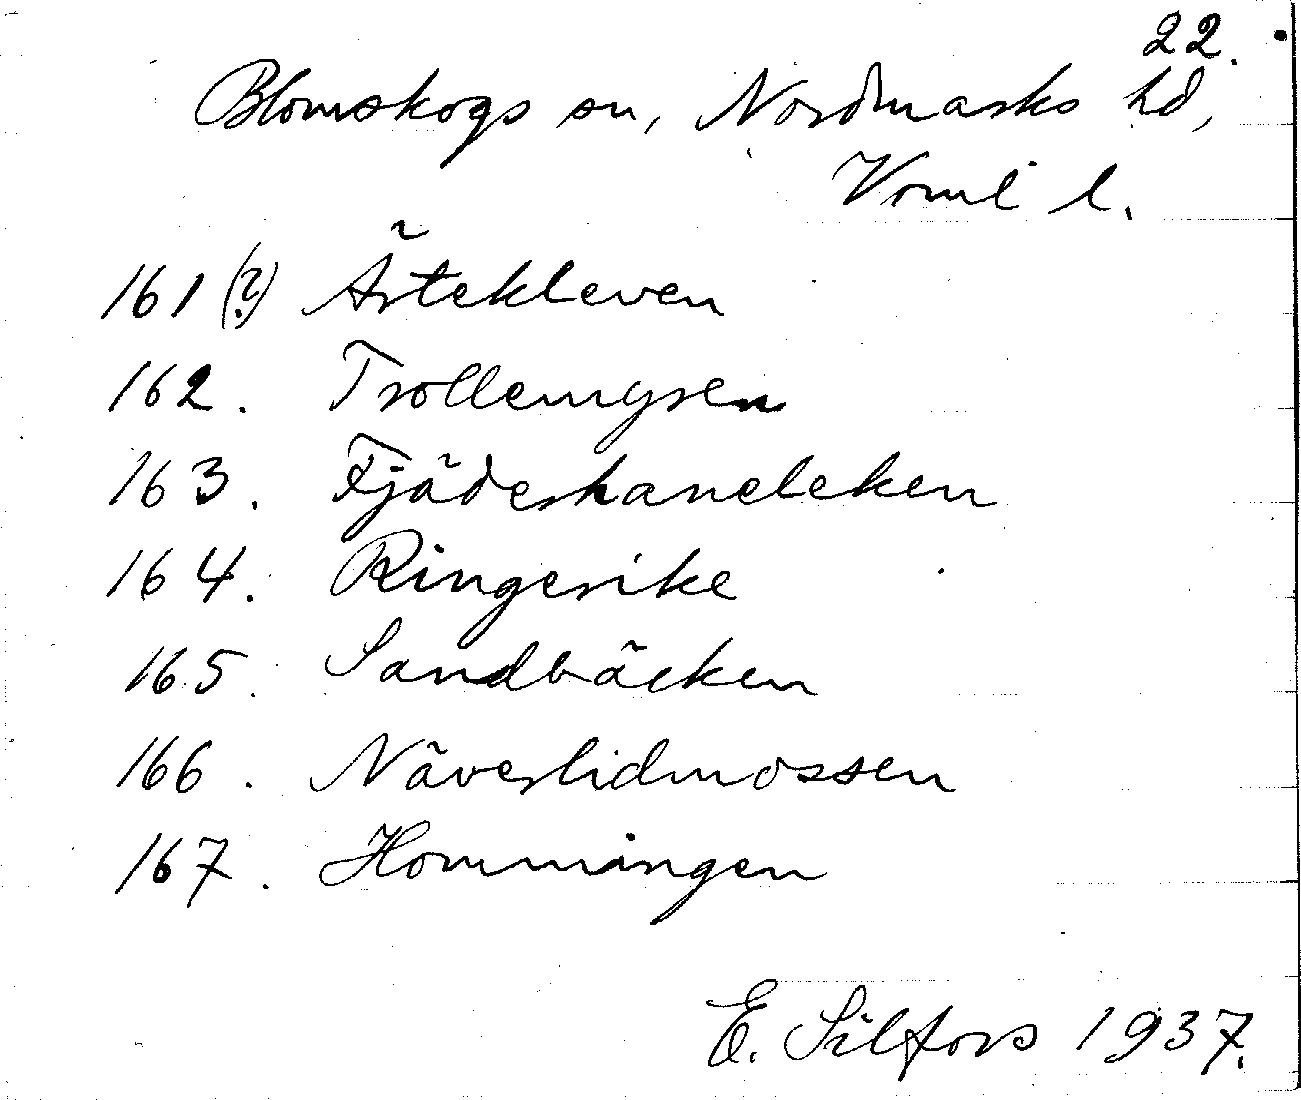 22.
Blomskogs sn, Nordmarks hd,
Vrml l.
161(?) Ärtekleven
162. Trollemyren
163. Fjäderhaneleken
164. Ringerike
165. Sandbäcken
166. Näverlidmossen
167. Hommången
E. Silfors 1937.